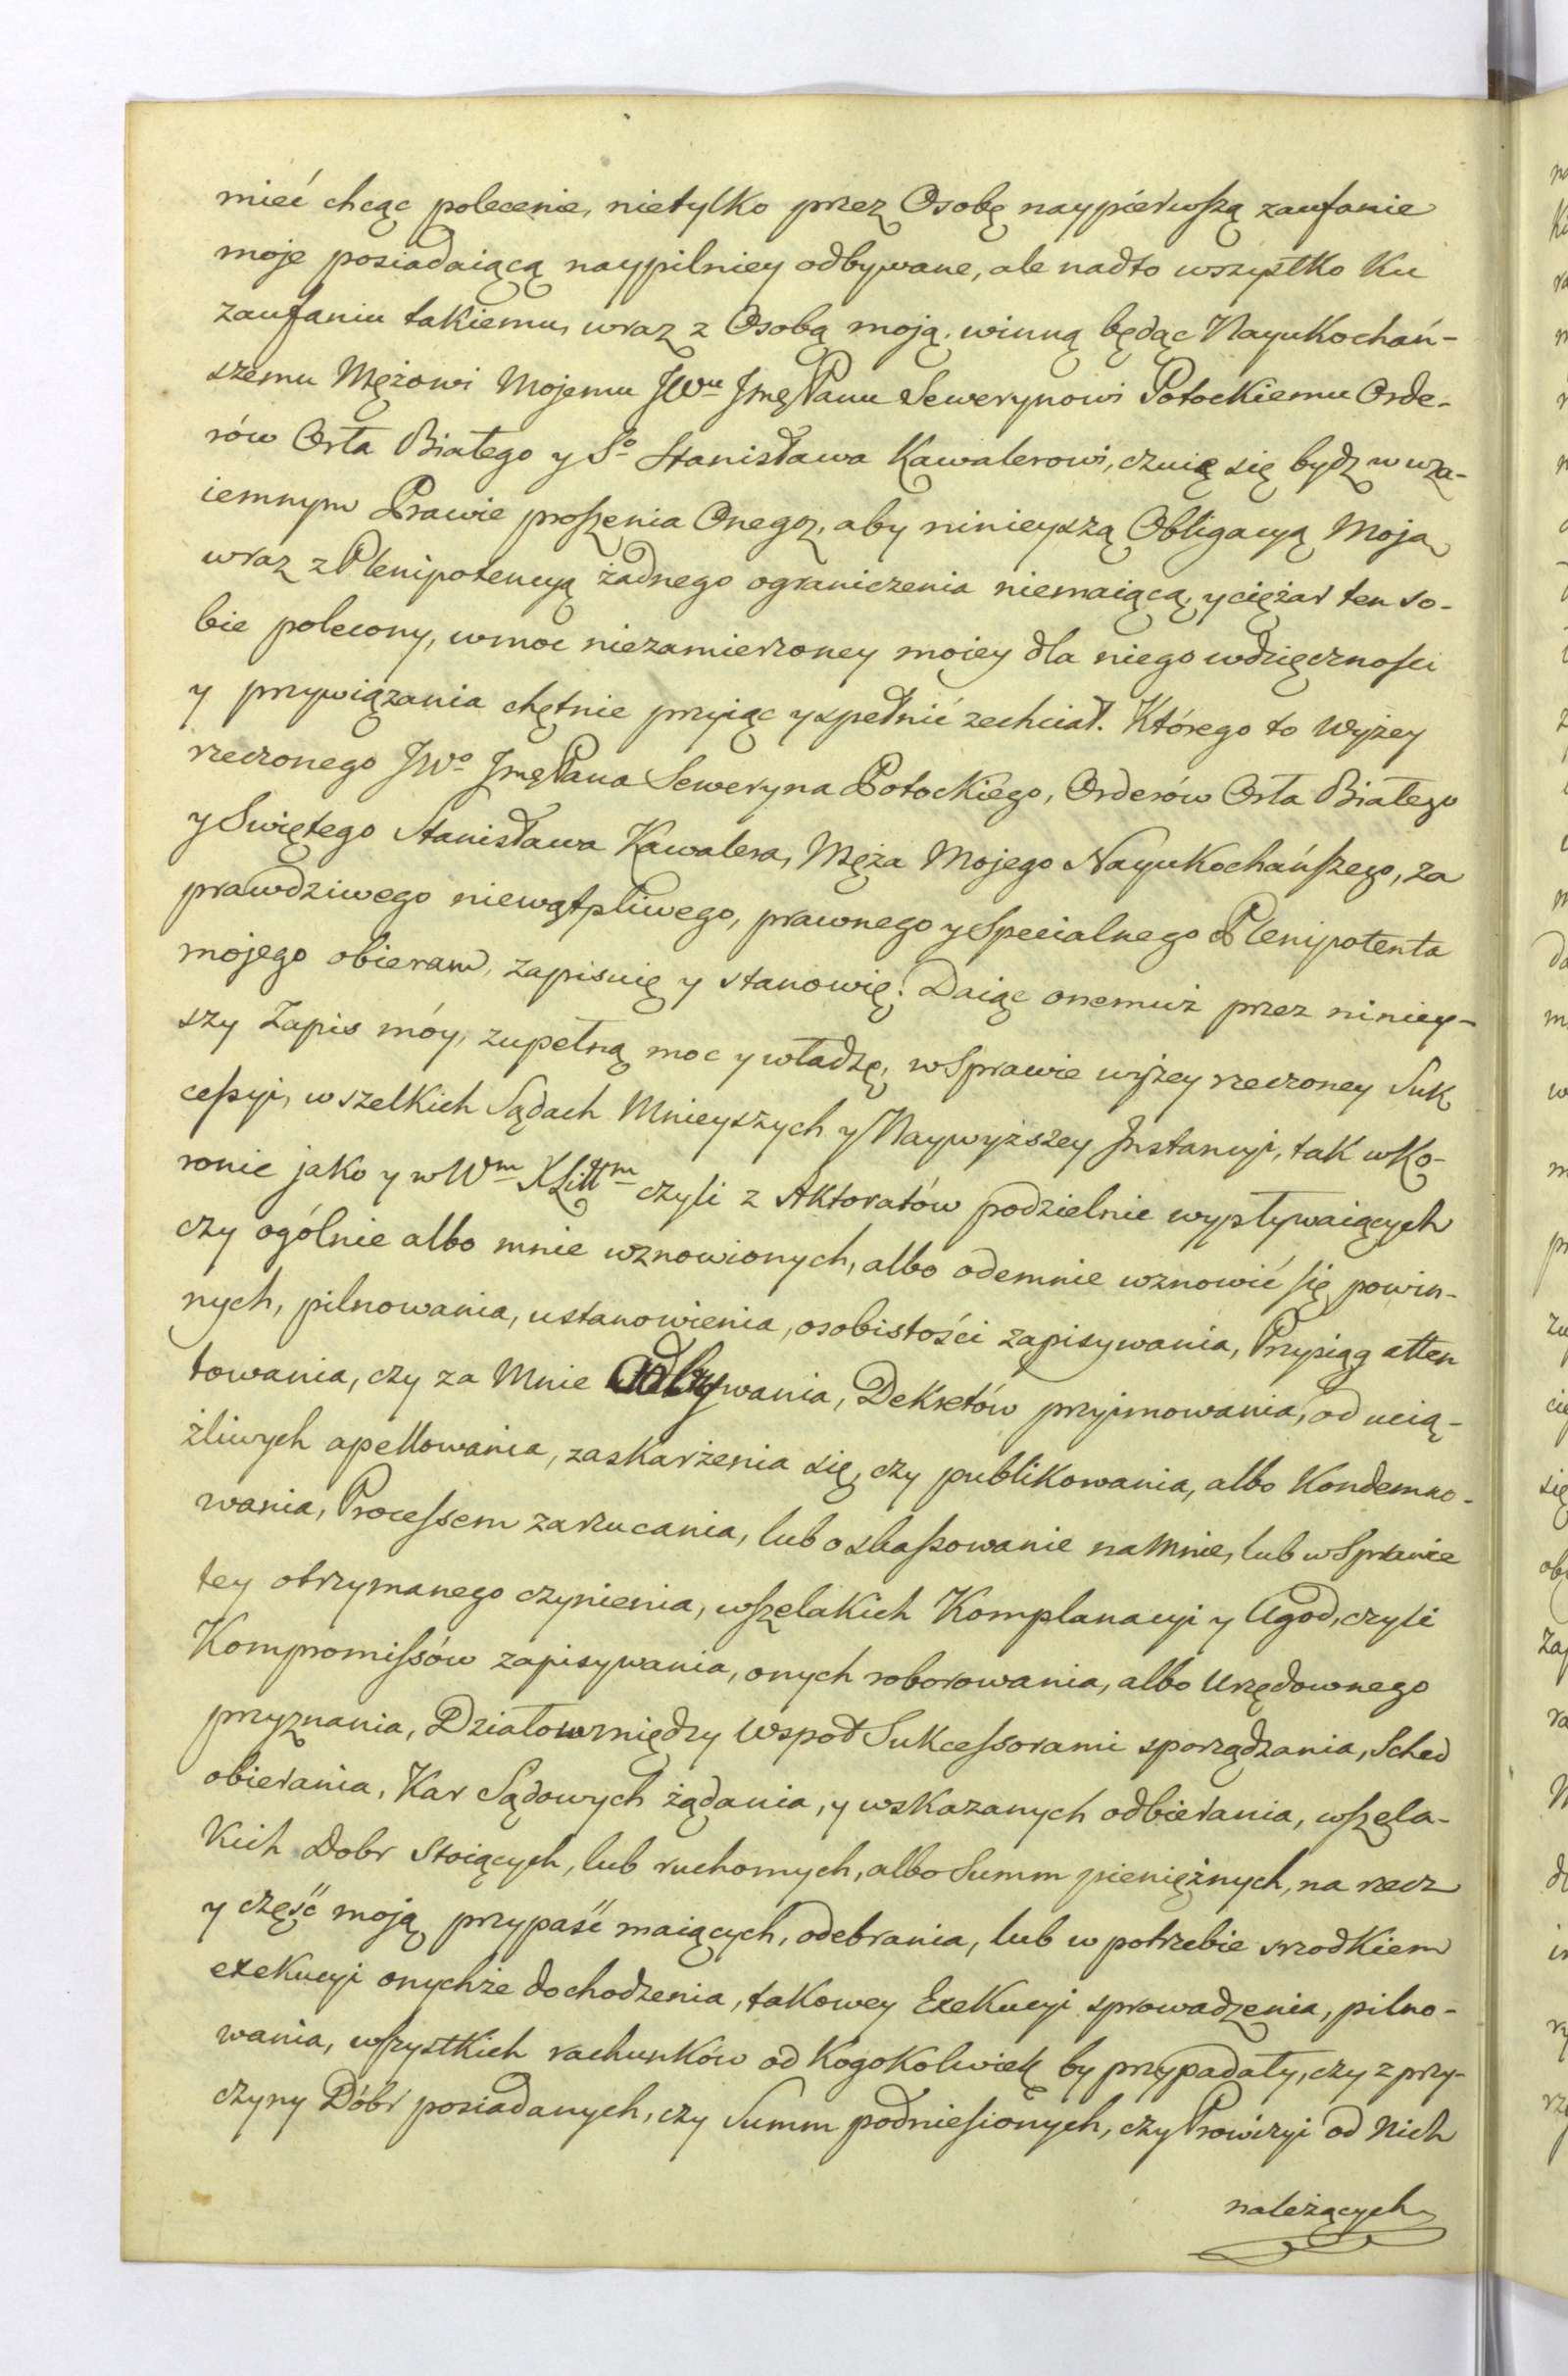 mieć chcąc polecenie, nietylko przez Osobę naypiérwszą zaufanie
moje posiadaiącą naypilniey odbywane, ale nadto wszystko ku
zaufaniu takiemu, wraz z Osobą moją, winną będąc Nayukochań-
szemu Mężowi Mojemu JWu Jmę Panu Sewerynowi Potockiemu Orde-
rów Orła Białego y So Stanisława Kawalerowi, czuię się bydz w wza-
iemnym Prawie proszenia Onegoz, aby ninieyszą Obligacyą Moja
wraz z Plenipotencyą żadnego ograniczenia niemaiącą, y ciężar ten so-
bie polecony, w moc niezamierzoney moiey dla niego wdzięczności
y przywiązania chętnie przyiąc y spełnić zechciał. Którego to wyżey
rzeczonego JWo Jmę Pana Seweryna Potockiégo, Orderów Orła Białego
y Swiętego Stanisława Kawalera, Męża Mojego Nayukochańszego, za
prawdziwego niewątpliwego, prawnego y Specialnego Plenipotenta
mojego obieram, zapisuię y stanowię: Daiąc onemuż przez niniey-
szy Zapis móy, zupełną moc y władzę, w Sprawie wyżey rzeczoney Suk
cessyi, wszelkich Sądach Mnieyszych y Naywyższey Jnstancyi, tak w Ko-
ronie jako y w Wm XLittm czyli z Aktoratów podzielnie wypływaiących
czy ogólnie albo mnie wznowionych, albo odemnie wznowić się powin-
nych, pilnowania, ustanowienia, osobistości zapisywania, Przysiąg atten
towania, czy za Mnie Odbywania, Dekretów przyimowania, od ucią-
żliwych apellowania, zaskarżenia się, czy publikowania, albo Kondemno-
wania, Processem zarzucania, lub o skassowanie na Mnie, lub w Sprawie
tey otrzymanego czynienia, wszelakich Komplanacyi y Ugod, czyli
Kompromissów zapisywania, onych roborowania, albo Urzędownego
przyznania, Działow między Wspoł Sukcessorami sporządzania, Sched
obierania, Kar Sądowych żądania, y wskazanych odbierania, wszela-
kich Dobr Stoiących, lub ruchomych, albo Summ pieniężnych, na rzecz
y część moją przypaść maiących, odebrania, lub w potrzebie srzodkiem
exekucyi onychże dochodzenia, takowey Exekucyi sprowadzenia, pilno-
wania, wszystkich rachunków od kogokolwiek by przypadały, czy z przy-
czyny Dóbr posiadanych, czy Summ podniesionych, czy Prowizyi od nich
należących